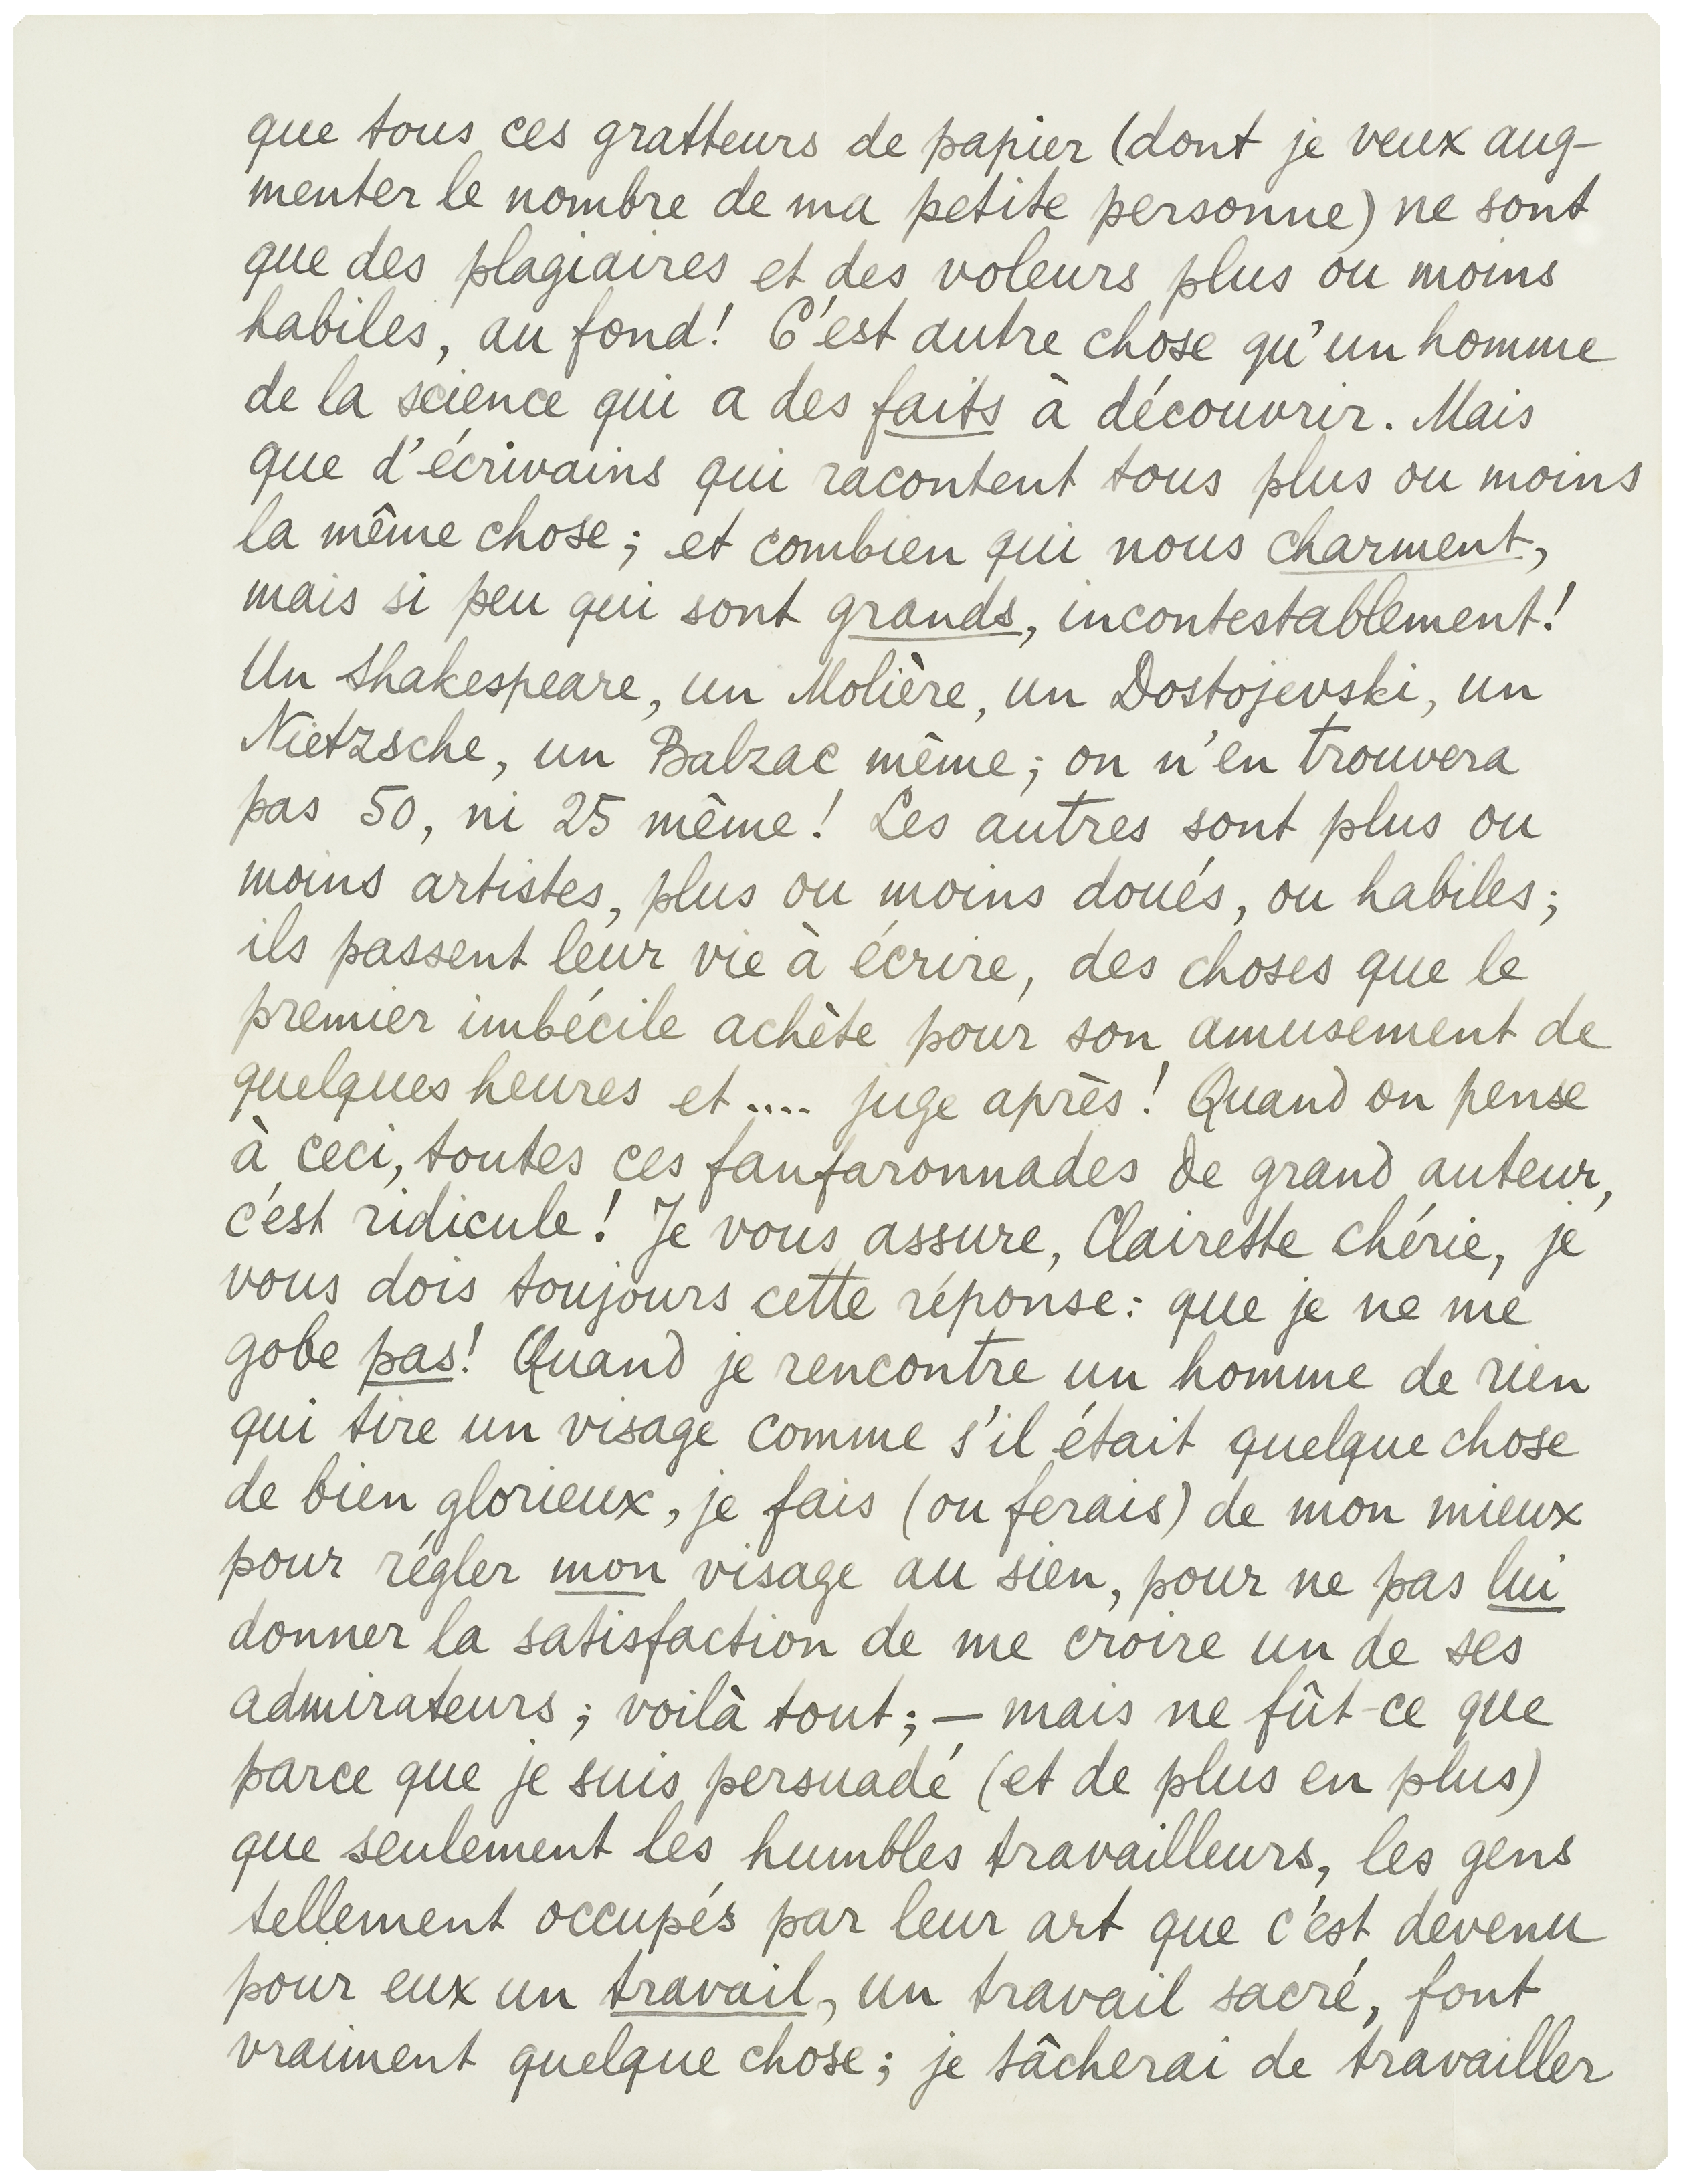 que tous ces gratteurs de papier (dont je veux aug-
menter le nombre de ma petite personne) ne sont
que des plagiaires et des voleurs plus ou moins
habiles, au fond! C'est autre chose qu'un homme
de la science qui a des faits à découvrir. Mais
que d'écrivains qui racontent tous plus ou moins
la même chose; et combien qui nous charment,
mais si peu qui sont grands, incontestablement!
Un Shakespeare, un Molière, un Dostojevski, un
Nietzsche, un Balzac même; on n'en trouvera
pas 50, ni 25 même! Les autres sont plus ou
moins artistes, plus ou moins doués, ou habiles;
ils passent leur vie à écrire, des choses que le
premier imbécile achète pour son amusement de
quelques heures et .... juge après! Quand on pense
à ceci, toutes ces fanfaronnades de grand auteur,
c'est ridicule! Je vous assure, Clairette chérie, je
vous dois toujours cette réponse: que je ne me
gobe pas! Quand je rencontre un homme de rien
qui tire un visage comme s'il était quelque chose
de bien glorieux, je fais (ou ferais) de mon mieux
pour régler mon visage au sien, pour ne pas lui
donner la satisfaction de me croire un de ses
admirateurs; voilà tout; — mais ne fût-ce que
parce que je suis persuadé (et de plus en plus)
que seulement les humbles travailleurs, les gens
tellement occupés par leur art que c'est devenu
pour eux un travail, un travail sacré, font
vraiment quelque chose; je tâcherai de travailler